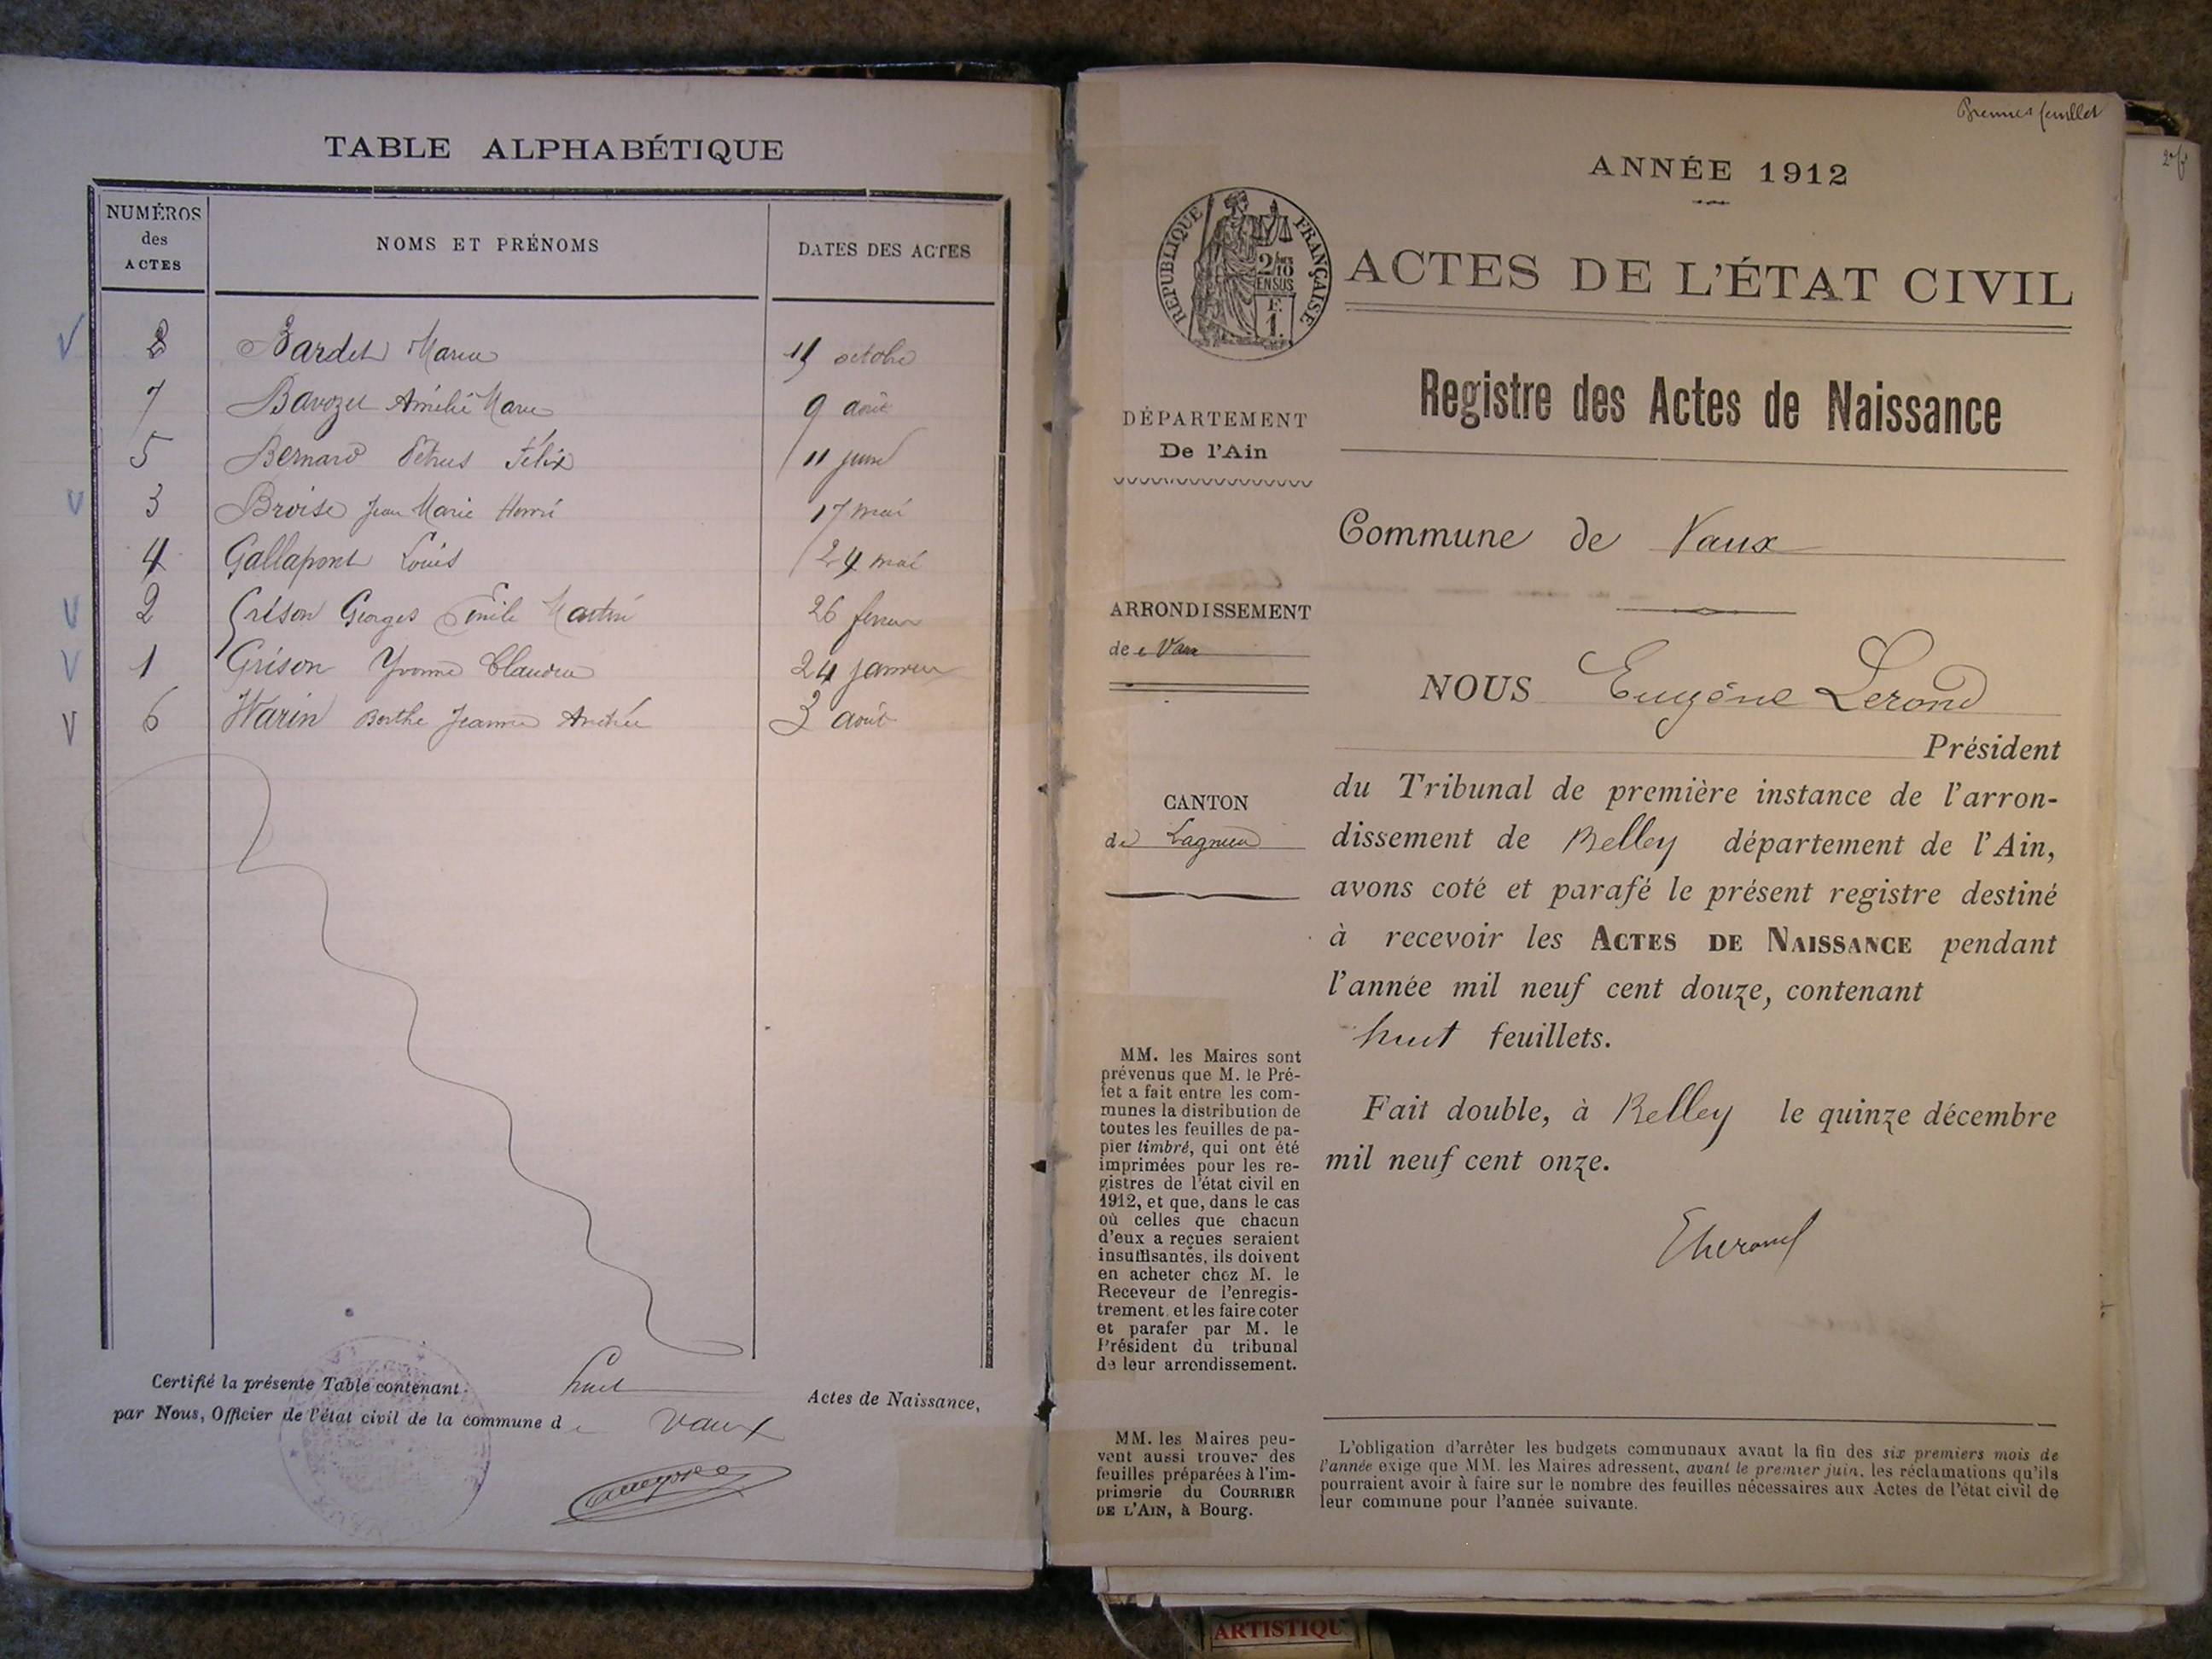 TABLE ALPHABÉTIQUE
NUMÉROS des ACTES
NOMS ET PRÉNOMS
DATES DES ACTES
8 Bardet Maria 11 octobre
7 Bavozet Amélie Marie 9 août
5 Bernard Pétrus Félix 11 juin
3 Broise Jean Marie Henri 17 mai
4 Gallapont Louis 24 mai
2 Grison Georges Emile 26 fevrier
1 Grison Yvonne Claudia 24 janvier
6 Warin Berthe Jeanne Andrée 3 août
Certifié la présente Table contenant huit Actes de Naissance,
par Nous, Officier de l'état civil de la commune de Vaux
Premier feuillet
ANNÉE 1912
RÉPUBLIQUE FRANÇAISE
2/10
EN SUS
F.
1.
ACTES DE L'ÉTAT CIVIL
Registre des Actes de Naissance
DÉPARTEMENT
De l'Ain
Commune de Vaux
ARRONDISSEMENT
de Vaux
NOUS Eugène Lerond
Président
CANTON
de Lagnieu
du Tribunal de première instance de l'arron-
dissement de Belley département de l'Ain,
avons coté et parafé le présent registre destiné
à recevoir les ACTES DE NAISSANCE pendant
l'année mil neuf cent douze, contenant
huit feuillets.
Fait double, à Belley le quinze décembre
mil neuf cent onze.
MM. les Maires sont
prévenus que M. le Pré-
fet a fait entre les com-
munes la distribution de
toutes les feuilles de pa-
pier timbré, qui ont été
imprimées pour les re-
gistres de l'état civil en
1912, et que, dans le cas
où celles que chacun
d'eux a reçues seraient
insuffisantes, ils doivent
en acheter chez M. le
Receveur de l'enregis-
trement, et les faire coter
et parafer par M. le
Président du tribunal
de leur arrondissement.
MM. les Maires peu-
vent aussi trouver des
feuilles préparées à l'im-
primerie du COURRIER
DE L'AIN, à Bourg.
L'obligation d'arrêter les budgets communaux avant la fin des six premiers mois de
l'année exige que MM. les Maires adressent, avant le premier juin, les réclamations qu'ils
pourraient avoir à faire sur le nombre des feuilles nécessaires aux Actes de l'état civil de
leur commune pour l'année suivante.
ARTISTIQU